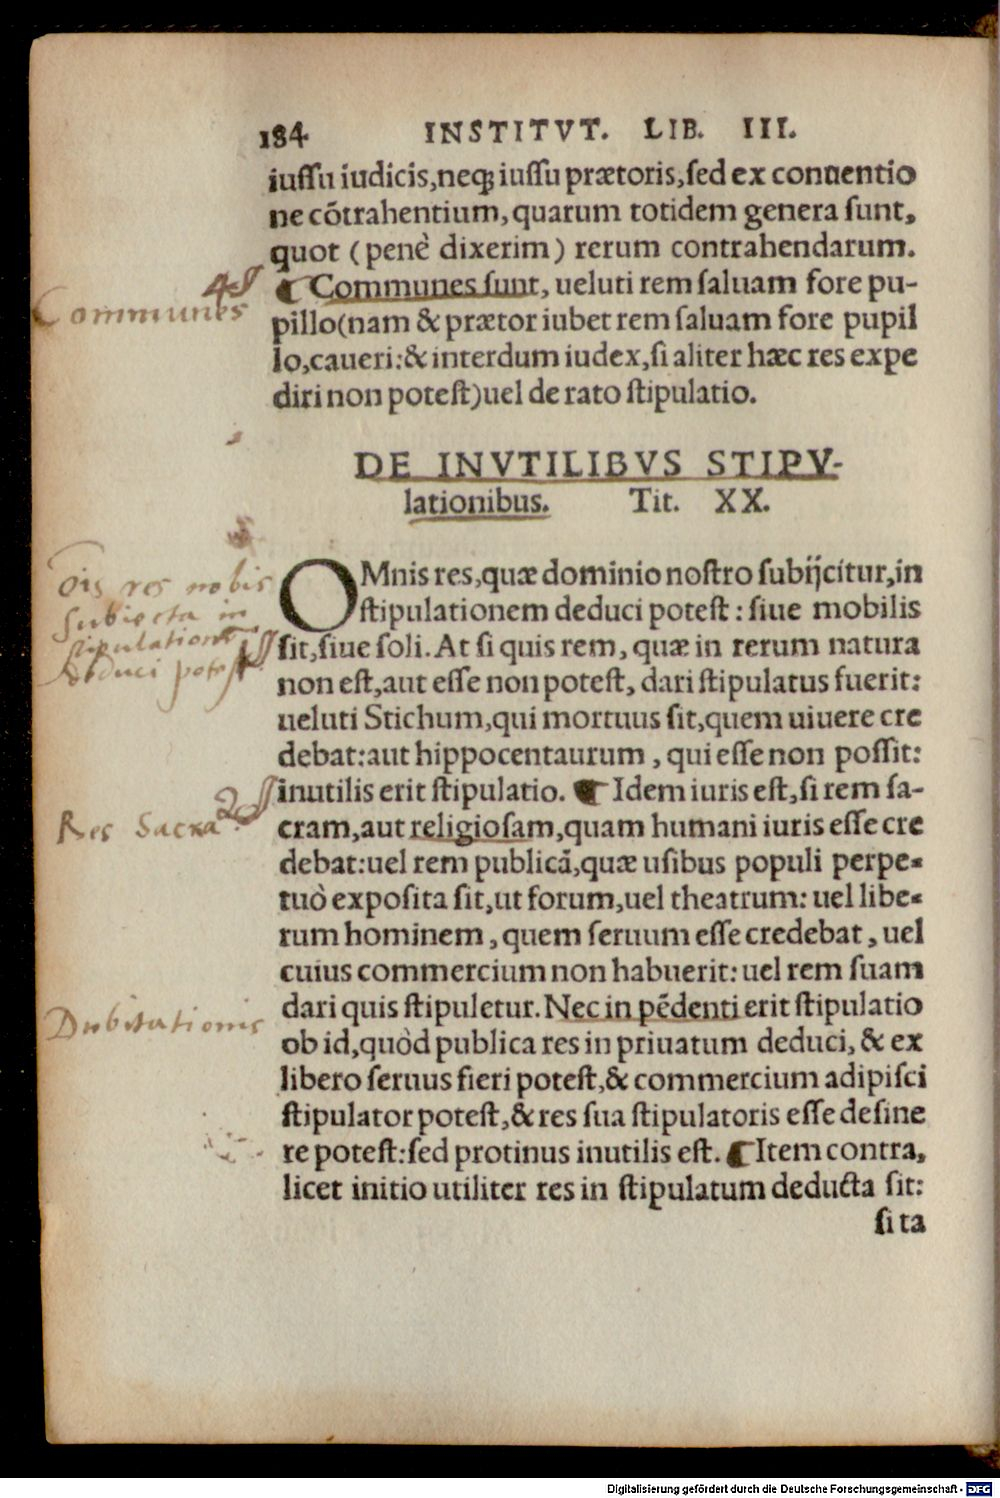 184 INSTITVT. LIB. III.
iussu iudicis,neq; iussu prætoris,sed ex conuentio
ne cōtrahentium, quarum totidem genera sunt,
quot (penè dixerim) rerum contrahendarum.
4
¶ Communes sunt, ueluti rem saluam fore pu-
Communes
pillo(nam & prætor iubet rem saluam fore pupil
lo,caueri:& interdum iudex,si aliter hæc res expe
diri non potest)uel de rato stipulatio.
DE INVTILIBVS STIPV-
lationibus. Tit. XX.
OMnis res,quæ dominio nostro subijcitur,in
stipulationem deduci potest : siue mobilis
sit,siue soli. At si quis rem, quæ in rerum natura
non est,aut esse non potest, dari stipulatus fuerit:
ueluti Stichum,qui mortuus sit,quem uiuere cre
debat:aut hippocentaurum , qui esse non possit:
inutilis erit stipulatio. ¶ Idem iuris est,si rem sa-
cram,aut religiosam,quam humani iuris esse cre
debat:uel rem publicã,quæ usibus populi perpe-
tuò exposita sit,ut forum,uel theatrum: uel libe-
rum hominem , quem seruum esse credebat , uel
cuius commercium non habuerit: uel rem suam
dari quis stipuletur. Nec in pẽdenti erit stipulatio
ob id,quòd publica res in priuatum deduci, & ex
libero seruus fieri potest,& commercium adipisci
stipulator potest,& res sua stipulatoris esse desine
re potest:sed protinus inutilis est. ¶ Item contra,
licet initio utiliter res in stipulatum deducta sit:
si ta
Ois res nobis
subiecta in
stipulatione
deduci potest
1
2
Res Sacra
Dubitationis
Digitalisierung gefördert durch die Deutsche Forschungsgemeinschaft - DFG